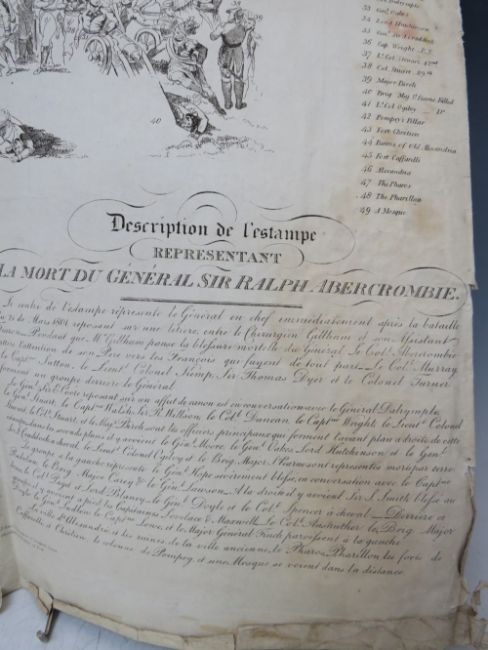 39
40
33 Gen.l Oakes
34 Lord Hutchinson
35 Gen.l Sir J. Craddock
36 Cap. Wright R.N.
37 L.t Col. Stuart 42.nd
38 Col. Stuart 29.th
39 Major Birch
40 Brig. Maj. St Pierre Killed
41 L.t Col. Ogilvy D.o
42 Pompey's Pillar
43 Fort Chretien
44 Ruins of Old Alexandria
45 Fort Caffarelli
46 Alexandria
47 The Pharos
48 The Pharillon
49 A Mosque
Description de l'estampe
REPRESENTANT
LA MORT DU GÉNÉRAL SIR RALPH ABERCROMBIE.
Le centre de l'estampe représente le Général en chef immédiatement après la bataille
21 de Mars 1801, reposant sur une litière, entre le Chirurgien Gillham et son Assistant
Pendant que M.r Gillham panse la blessure mortelle du Général, Le Col.l Abercrombie
l'attention de son Pere vers les François qui fuyent de tout part Le Col.l Murray
le Cap.n Sutton, le Lieut.t Colonel Kemp, Sir Thomas Dyer et le Colonel Turner
forment un groupe derriere le Général
Le Gen.l Sir E. Coote reposant sur un affut de canon est en conversation avec le Général Dalrymple
le Gen.l Stuart, le Cap.n Walsh, Sir R. Wilson, le Col.l Duncan, le Cap.n Wright, le Lieut.t Colonel
Stuart, le Col.l Stuart, et le Maj.r Birch sont les officiers principaux qui forment l'avant plan a droite de cette
dans les seconds plans il y avoient le Gen.l Moore, le Gen.l Oakes, Lord Hutchinson et le Gen.l
Craddock a cheval, le Lieut.t Colonel Ogilvy et le Brig. Major St Pierre sont représentés morts par terre
groupe a la gauche represente le Gen.l Hope sevérement blessé, en conversation avec le Cap.n
le Brig. Major Carey & le Gen.l Lawson A la droite il y avoient Sir S. Smith blessé au
le Col.l Paget, et Lord Blaney, le Gen.l Doyle et le Col.l Spencer a cheval Derrière et
y avoient a pied les Capitaines Lovelace & Maxwell. Le Col.l Anstruther le Brig. Major
Doyle le Gen.l Ludlow, le Cap.n Lowe, et le Major Général Finch paroissent à la gauche
La ville d'Alexandrie et les ruines de la ville ancienne, le Pharos, Pharillon, les forts de
Caffarelli, & Chretien, la colonne de Pompey, et une Mosque se voient dans la distance.